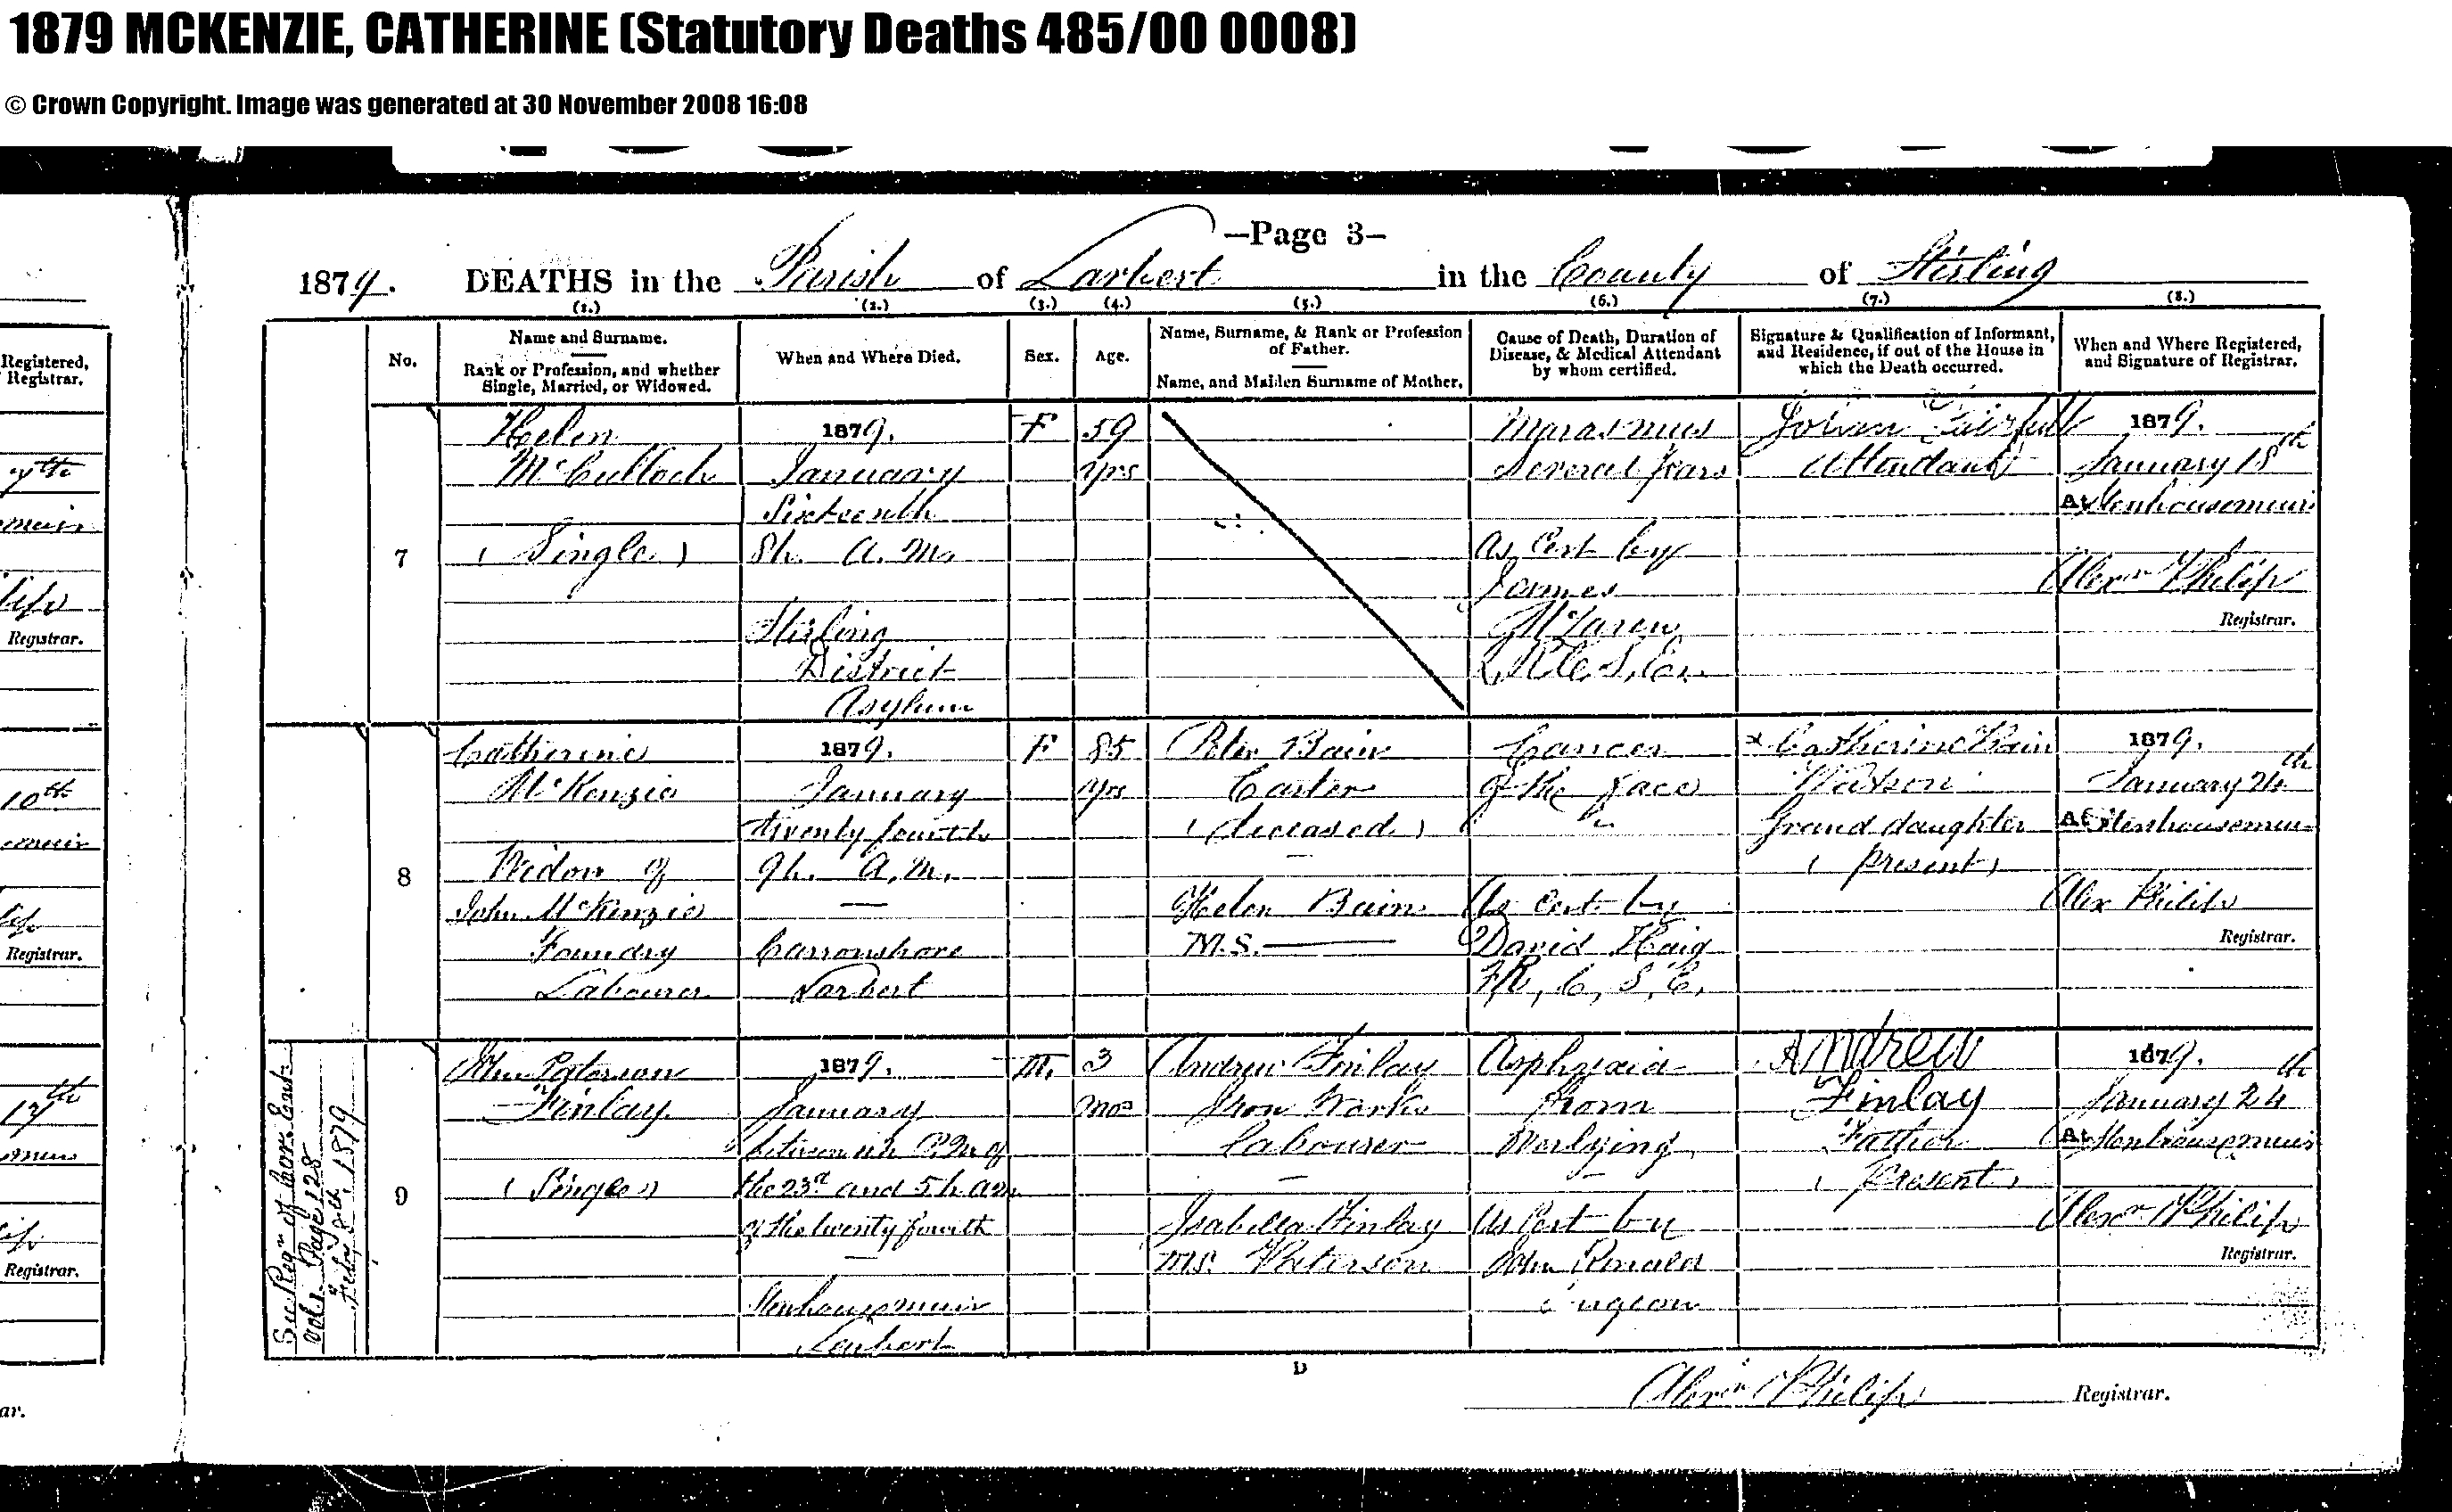 1879 MCKENZIE, CATHERINE (Statutory Deaths 485/00 0008)
© Crown Copyright. Image was generated at 30 November 2008 16:08
—Page 3—
1879. DEATHS in the Parish of Larbert in the County of Stirling
(1.) (2.) (3.) (4.) (5.) (6.) (7.) (8.)
No.
Name and Surname.
Rank or Profession, and whether
Single, Married, or Widowed.
When and Where Died.
Sex.
Age.
Name, Surname, & Rank or Profession
of Father.
Name, and Maiden Surname of Mother.
Cause of Death, Duration of
Disease, & Medical Attendant
by whom certified.
Signature & Qualification of Informant,
and Residence, if out of the House in
which the Death occurred.
When and Where Registered,
and Signature of Registrar.
7
Helen
McCulloch
(Single)
1879.
January
Sixteenth
8h. A.M.
Stirling
District
Asylum
F
59
yrs
Marasmus
Several Years
As Cert by
James
McLaren
L.R.C.S. Ed.
Attendant
1879.
January 18th
At Stenhousemuir
Alexr Philip
Registrar.
8
Catherine
McKenzie
Widow of
John McKenzie
Foundry
Labourer
1879.
January
twenty fourth
9h. A.M.
—
Carronshore
Larbert
F
85
yrs
Peter Bain
Carter
(deceased)
—
Helen Bain
M.S. ———
Cancer
of the face
As Cert by
David Haig
F.R.C.S.E.
x Catherine Bain
Watson
Grand daughter
(present)
1879.
January 24th
At Stenhousemuir
Alex Philip
Registrar.
See Regr of Cor. Ent.
Vol. 1 Page 128
1879
9
John Paterson
Finlay
(Single)
1879.
January
between 11h P.M. of
the 23d and 5h a.m.
of the twenty fourth
—
Stenhousemuir
Larbert
M.
3
mos
Andrew Finlay
Iron Works
Labourer
—
Isabella Finlay
M.S. Paterson
Asphyxia
from
Overlying
—
As Cert by
John Ronald
Surgeon
Andrew
Finlay
Father
(Present)
1879.
January 24th
At Stenhousemuir
Alexr Philip
Registrar.
D
Alexr Philip Registrar.
Registered,
Registrar.
7th
muir
Registrar.
10th
Registrar.
17th
Registrar.
ar.